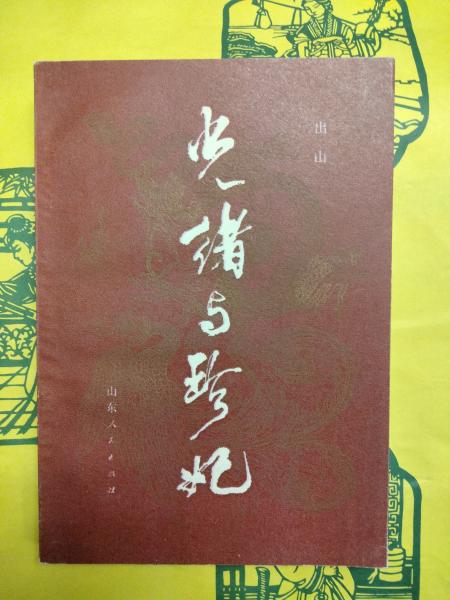 出山
光绪与珍妃
山东人民出版社